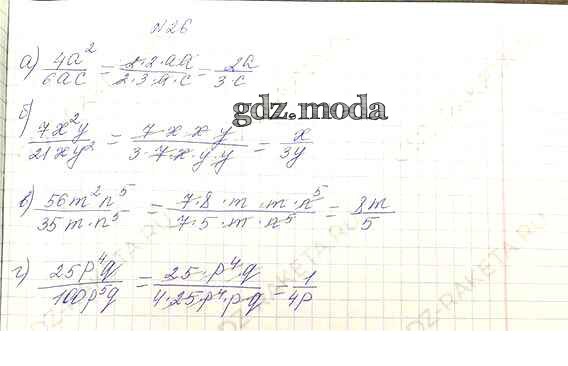 №26
а) 4a²/6ac = 2·2·a·a/2·3·a·c = 2a/3·c
gdz.moda
б) 7x²y/21xy² = 7·x·x·y/3·7·x·y·y = x/3y
в) 56m²n⁵/35m·n⁵ = 7·8·m·m·n⁵/7·5·m·n⁵ = 8m/5
г) 25p⁴q/100p⁵q = 25·p⁴·q/4·25p⁴·p·q = 1/4p
GDZ-RAKETA.RU